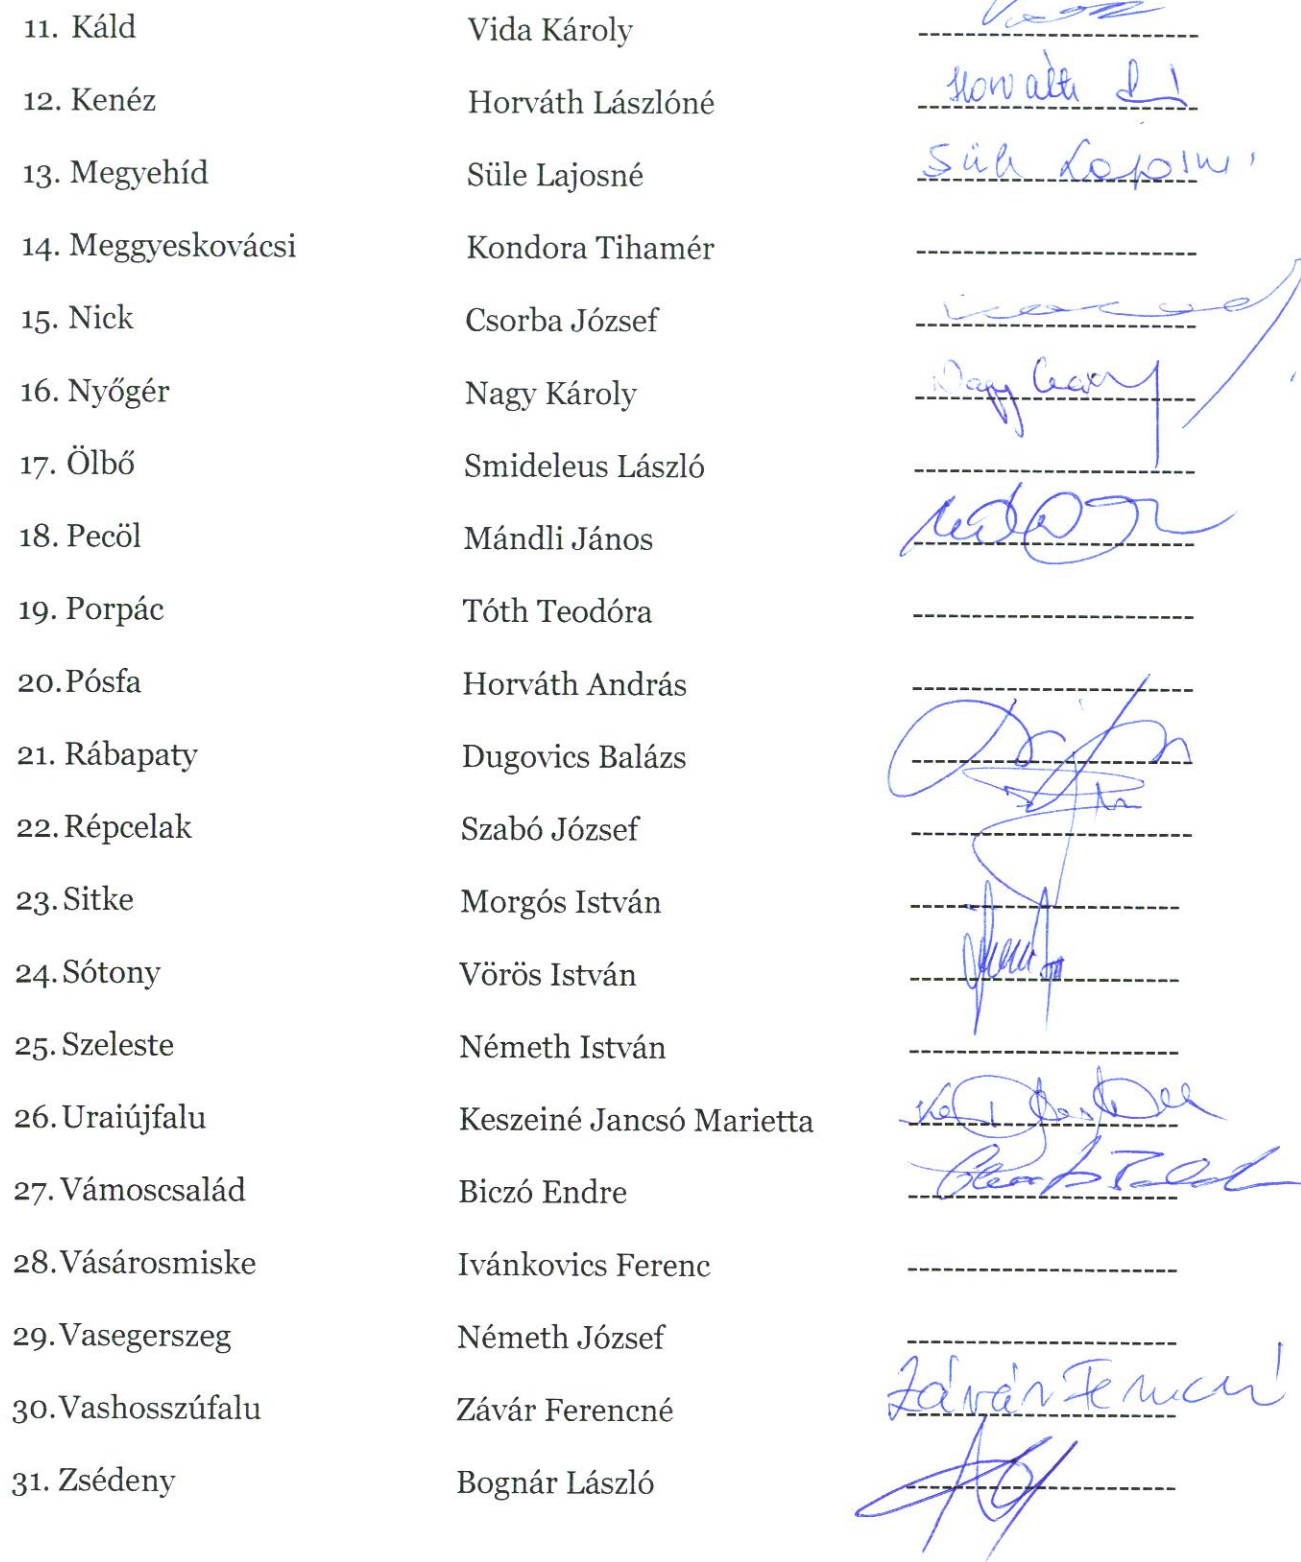 11. Káld Vida Károly
12. Kenéz Horváth Lászlóné Horváth
13. Megyehíd Süle Lajosné Süle Lajosné
14. Meggyeskovácsi Kondora Tihamér
15. Nick Csorba József
16. Nyőgér Nagy Károly Nagy
17. Ölbő Smideleus László
18. Pecöl Mándli János
19. Porpác Tóth Teodóra
20. Pósfa Horváth András
21. Rábapaty Dugovics Balázs
22. Répcelak Szabó József
23. Sitke Morgós István
24. Sótony Vörös István
25. Szeleste Németh István
26. Uraiújfalu Keszeiné Jancsó Marietta
27. Vámoscsalád Biczó Endre
28. Vásárosmiske Ivánkovics Ferenc
29. Vasegerszeg Németh József
30. Vashosszúfalu Závár Ferencné Závár Ferencné
31. Zsédeny Bognár László